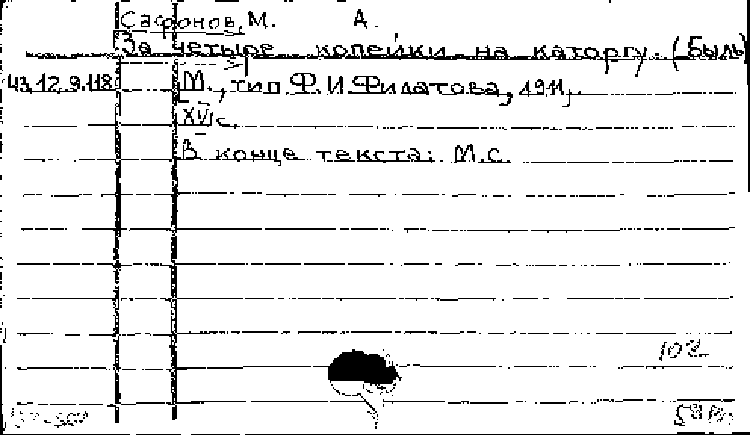 Сафонов, М. А.
За четыре копейки на каторгу. (Быль)
43.12.9.118 М., тип Ф. И. Филатова, 1911,
XVI с.
В конце текста: М.С.
102